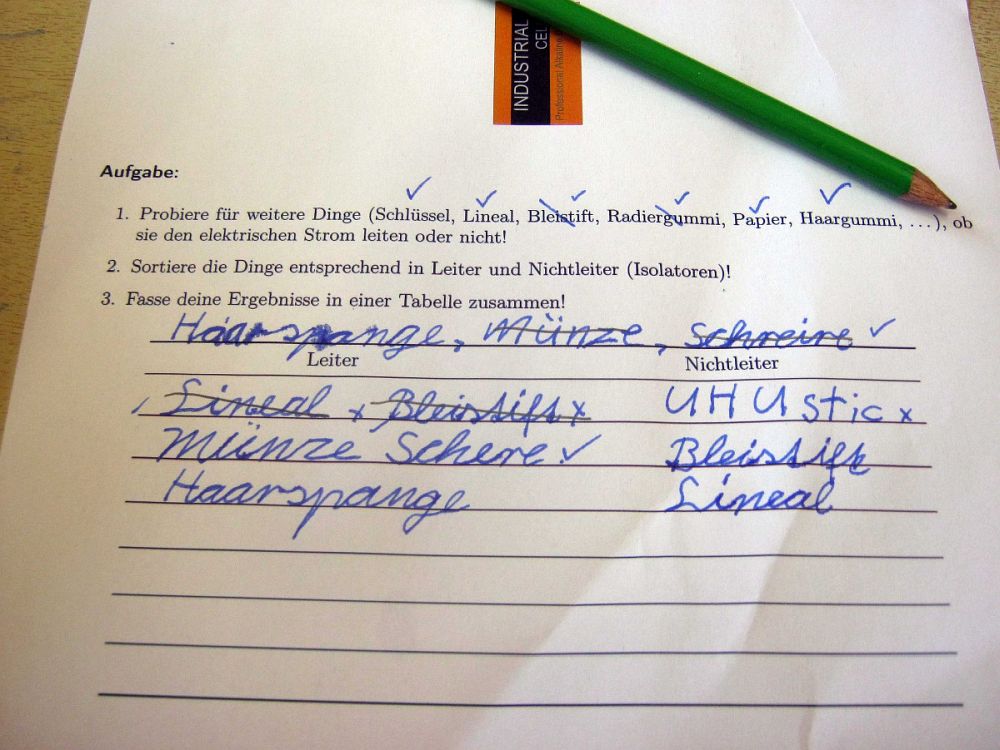 INDUSTRIAL
CEL
Professional Alkaline
Aufgabe:
1. Probiere für weitere Dinge (Schlüssel, Lineal, Bleistift, Radiergummi, Papier, Haargummi, ...), ob
sie den elektrischen Strom leiten oder nicht!
2. Sortiere die Dinge entsprechend in Leiter und Nichtleiter (Isolatoren)!
3. Fasse deine Ergebnisse in einer Tabelle zusammen!
Haarspange, Münze, Schreire ✓
Leiter Nichtleiter
Lineal x Bleistift x UHU stic x
Münze Schere ✓ Bleistift
Haarspange Lineal